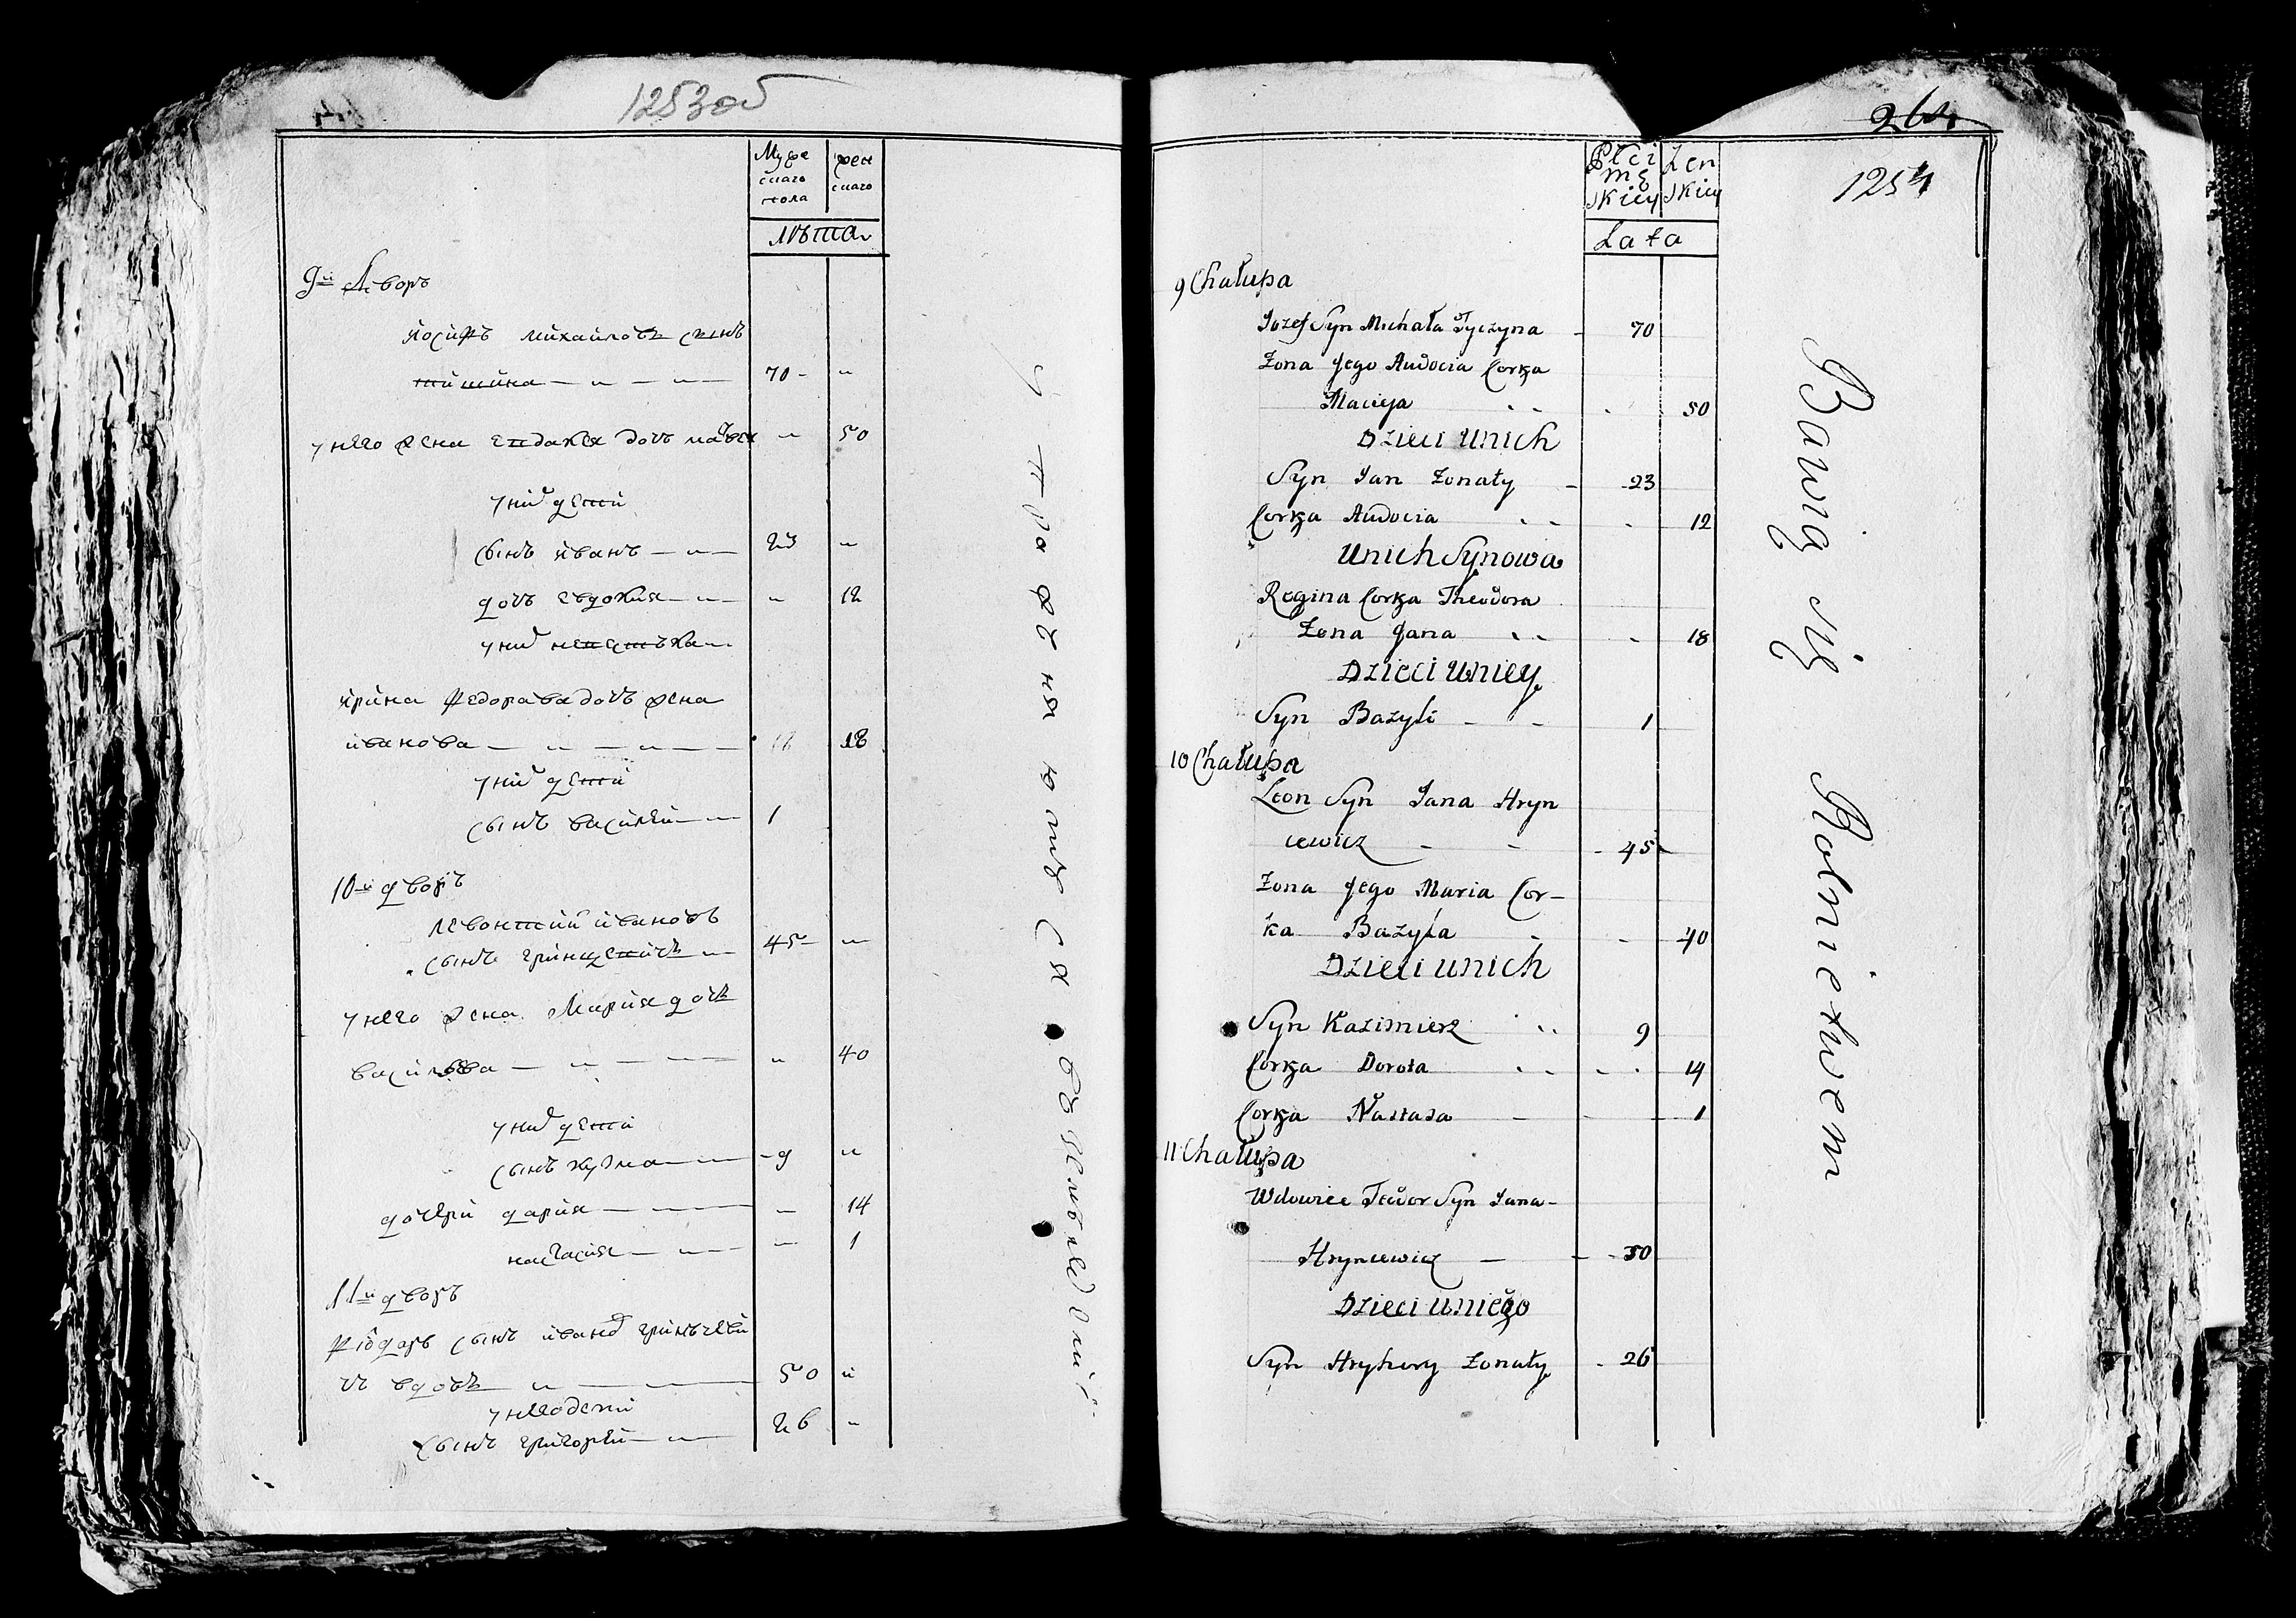 1253об
Муже
скаго
пола
жен
скаго
лѣта
9й Дворъ
йосифъ михайловъ сынъ
тишина 70 "
у него жена евдакея дочъ " 50
у них дети
сынъ иванъ 23 "
дочъ евдокия " 12
у них невестъка
ирина федорава дочъ жена
иванова 18
у них дети
сынъ василей 1
10й дворъ
левонтий ивановъ
сынъ гринцевичъ 45 "
у него жена Мария дочъ
васильева " 40
у них дети
сынъ кузма 9 "
дочери дария " 14
настасия " 1
11й дворъ
фіодоръ сынъ иванов гринъцеви
чъ вдовъ 50 "
у него дети
сынъ григорей 26 "
упражняютца в земледелии
264
1254
Płci
mę
skiey
Żen
skiey
Lata
9 Chałupa
Jozef Syn Michała Tyczyna 70
Zona Jego Audocia Corka
Macieja 50
Dzieci unich
Syn Jan Zonaty 23
Corka Audocia 12
Unich Synowa
Regina Corka Theodora
Zona Jana 18
Dzieci uniey
Syn Bazyli 1
10 Chałupa
Leon Syn Jana Hryn
cewicz 45
Zona Jego Maria Cor-
ka Bazyla 40
Dzieci unich
Syn Kazimierz 9
Corka Dorota 14
Corka Nastasa 1
11 Chałupa
Wdowiec Teudor Syn Jana
Hryncewicz 50
Dzieci uniego
Syn Hryhory Zonaty 26
Bawią się Rolnictwem